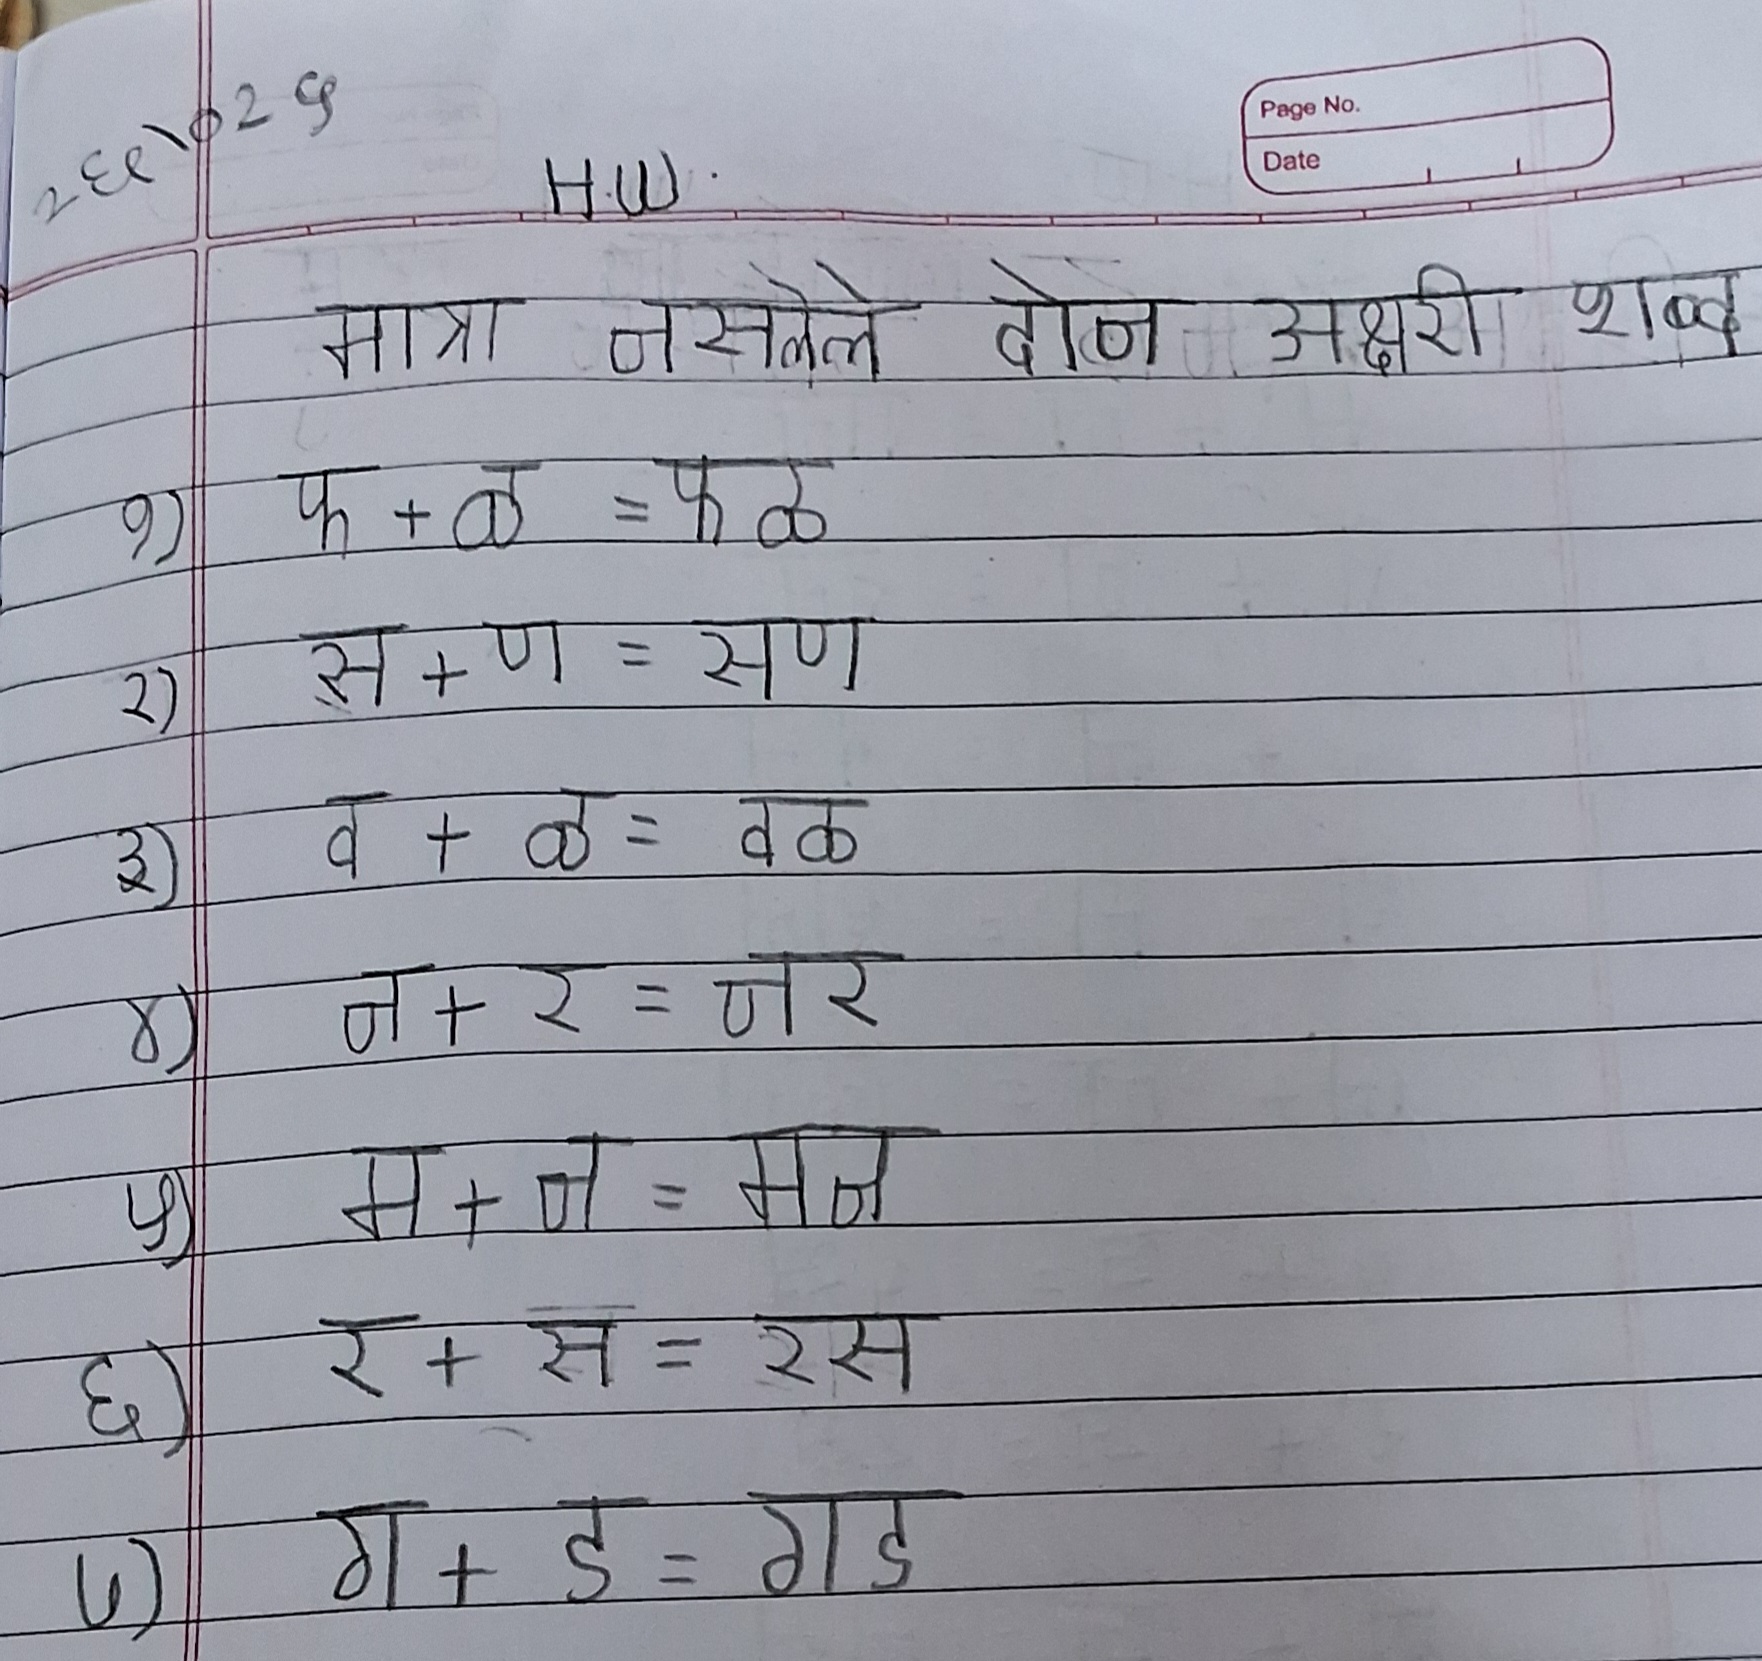 H.W.
Page No.
Date
मात्रा नसलेले दोन अक्षरी शब्द
१) फ + ळ = फळ
२) स + ण = सण
३) व + ळ = वळ
४) न + र = नर
५) म + न = मन
६) र + स = रस
७) ग + ड = गड